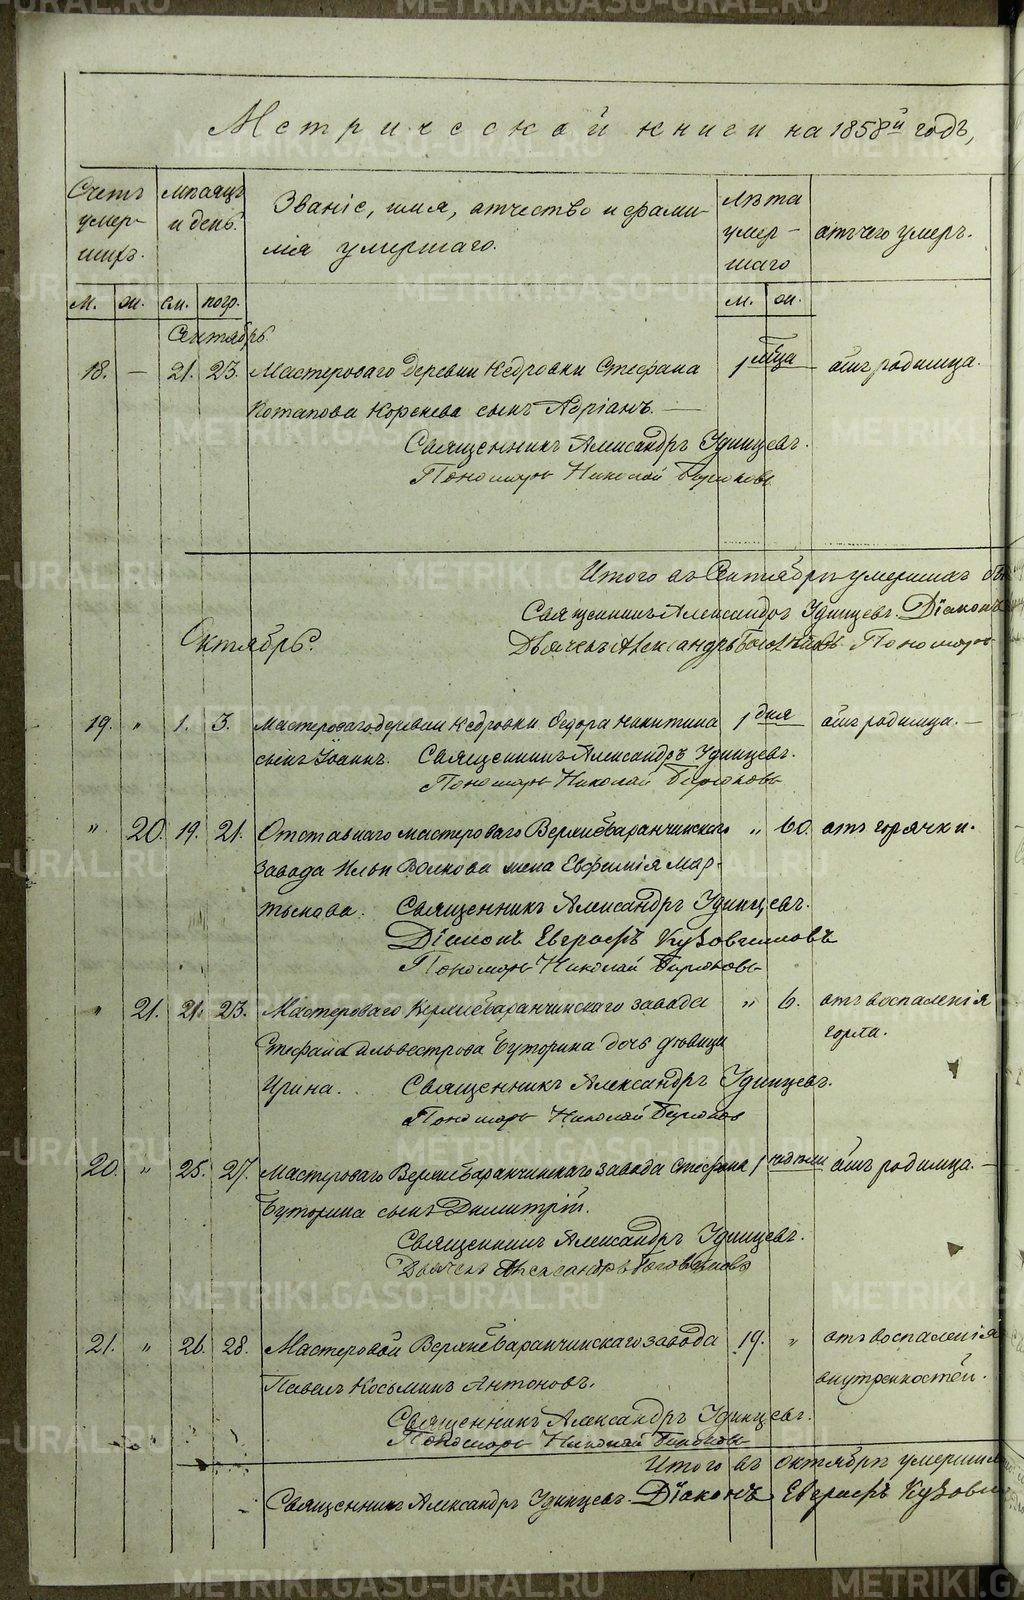 Метрической книги на 1858й годъ,
Счетъ умер-шихъ.
Мѣсяцъ и день.
Званіе, имя, отчество и фами-
лія умершаго.
Лѣта умер-шаго
отъ чего умеръ.
м. ж. см. погр. м. ж.
Сентябрь.
18. — 21. 23. Мастероваго деревни Кедровки Стефана 1 мѣца отъ родимца.
Потапова Коренева сынъ Адріанъ. —
Священникъ Александръ Удинцевъ.
Пономарь Николай Бирюковъ
Итого въ Сентябрѣ умершихъ
Священникъ Александръ Удинцевъ. Діаконъ
Октябрь.
Дьячекъ Александръ Пономарь
19. " 1. 3. Мастероваго деревни Кедровки Ѳедора Никитина 1 дня отъ родимца. —
сынъ Іоаннъ. Священникъ Александръ Удинцевъ.
Пономарь Николай Бирюковъ
" 20. 19. 21. Отставнаго мастероваго Верхнебаранчинскаго " 60. отъ горячки.
завода Ильи Волкова жена Евфимія Мар-
тынова. Священникъ Александръ Удинцевъ.
Діаконъ Евграфъ Кузовниковъ
Пономарь Николай Бирюковъ
" 21. 21. 23. Мастероваго Верхнебаранчинскаго завода " 6. отъ воспаленія
горла.
Стефана Сильвестрова Буторина дочь дѣвица
Ирина. Священникъ Александръ Удинцевъ.
Пономарь Николай Бирюковъ
20. " 25. 27. Мастероваго Верхнебаранчинскаго завода Стефана 1 отъ родимца. —
Буторина сынъ Димитрій.
Священникъ Александръ Удинцевъ.
Дьячекъ Александръ
21. " 26. 28. Мастеровой Верхнебаранчинскаго завода 19. " отъ воспаленія
Павелъ Косьминъ Антоновъ. внутренностей.
Священникъ Александръ Удинцевъ.
Пономарь Николай Бирюковъ
Итого въ октябрѣ умершихъ
Священникъ Александръ Удинцевъ. Діаконъ Евграфъ
METRIKI.GASO-URAL.RU